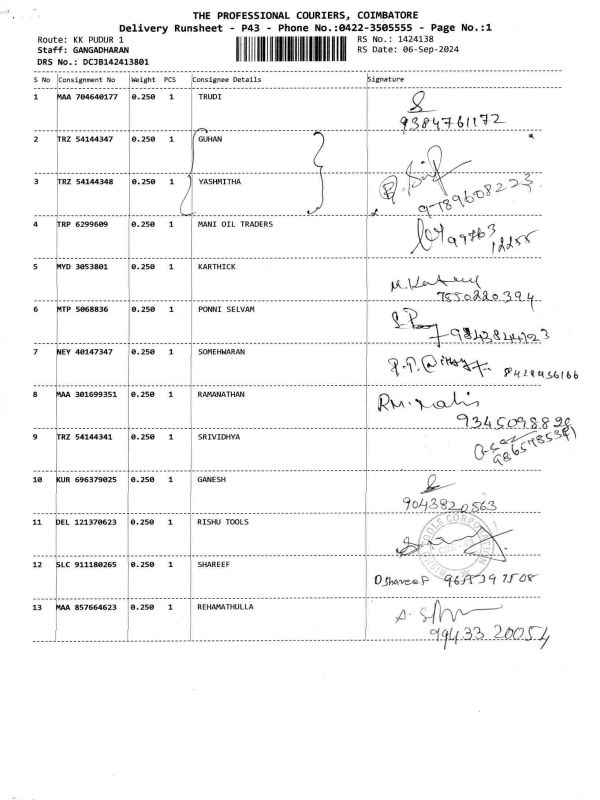 THE PROFESSIONAL COURIERS, COIMBATORE
Delivery Runsheet - P43 - Phone No.:0422-3505555 - Page No.:1
Route: KK PUDUR 1 RS No.: 1424138
Staff: GANGADHARAN RS Date: 06-Sep-2024
DRS No.: DCJB142413801
S No Consignment No Weight PCS Consignee Details Signature
1 MAA 704640177 0.250 1 TRUDI
9384761172
2 TRZ 54144347 0.250 1 GUHAN
3 TRZ 54144348 0.250 1 YASHMITHA
9789608223
4 TRP 6299609 0.250 1 MANI OIL TRADERS
99763
12255
5 MYD 3053801 0.250 1 KARTHICK
7550220394
6 MTP 5068836 0.250 1 PONNI SELVAM
7 NEY 40147347 0.250 1 SOMEHWARAN
8 MAA 301699351 0.250 1 RAMANATHAN
9 TRZ 54144341 0.250 1 SRIVIDHYA
10 KUR 696379025 0.250 1 GANESH
9043820563
11 DEL 121370623 0.250 1 RISHU TOOLS
TOOLS CORPORATION
12 SLC 911180265 0.250 1 SHAREEF
D Shareef
13 MAA 857664623 0.250 1 REHAMATHULLA
99433 20054